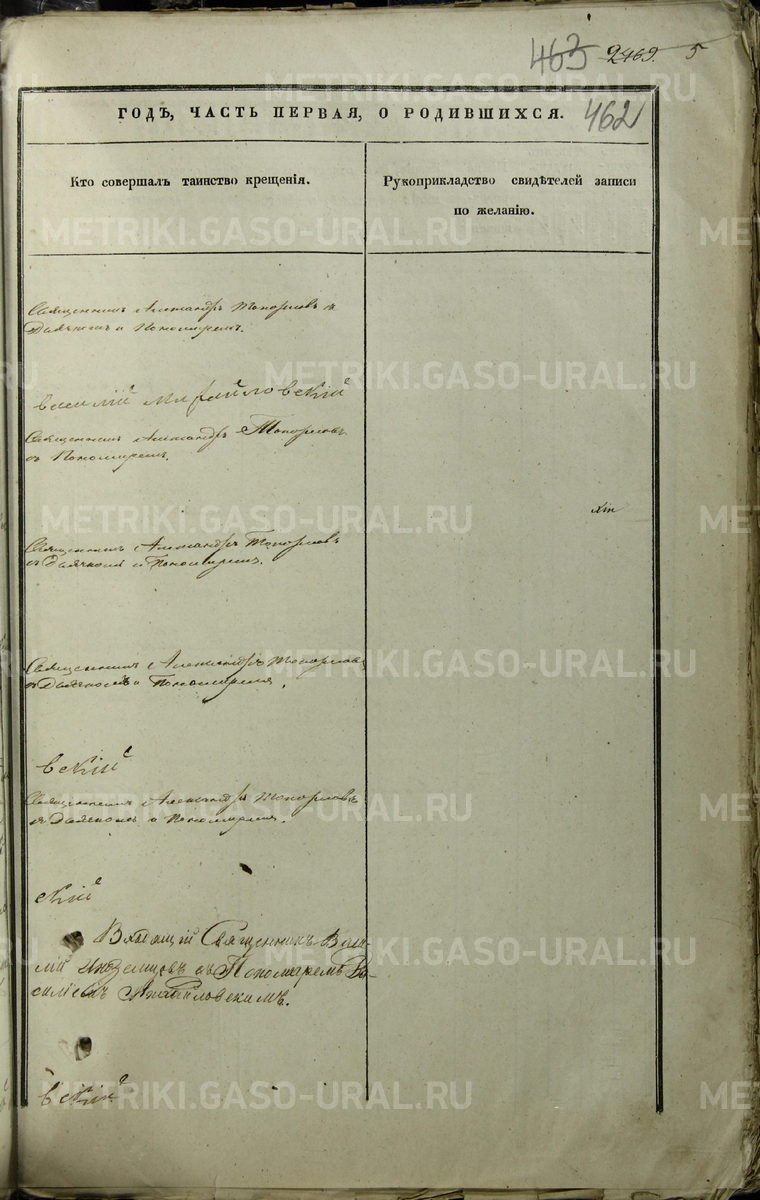 463 2469. 5
ГОДЪ, ЧАСТЬ ПЕРВАЯ, О РОДИВШИХСЯ. 462
Кто совершалъ таинство крещенія.
Рукоприкладство свидѣтелей записи
по желанію.
Священникъ Александръ Топорковъ съ
Дьячкомъ и Пономаремъ.
Василій Михайловскій
Священникъ Александръ Топорковъ
съ Пономаремъ.
Священникъ Александръ Топорковъ
съ Дьячкомъ и Пономаремъ.
Священникъ Александръ Топорковъ
съ Дьячкомъ и Пономаремъ.
вскій
Священникъ Александръ Топорковъ
съ Дьячкомъ и Пономаремъ.
скій
Священникъ Васи-
лій Иноземцовъ съ Пономаремъ Ва-
силіемъ Михайловскимъ.
вскій
METRIKI.GASO-URAL.RU